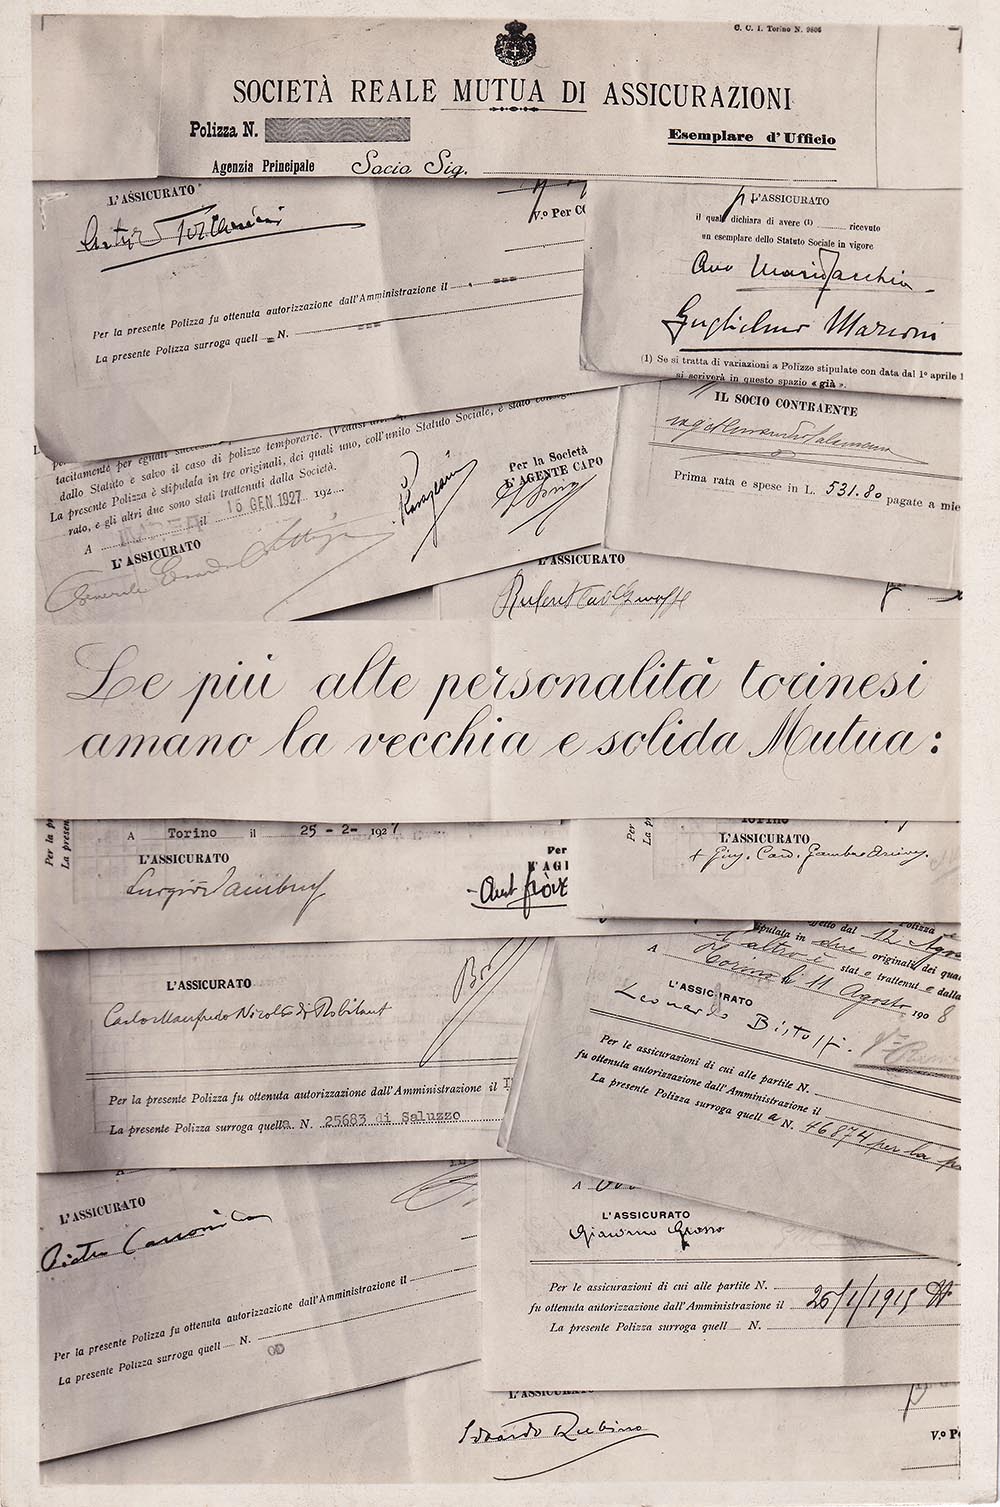 C. C. I. Torino N. 9806
SOCIETÀ REALE MUTUA DI ASSICURAZIONI
Polizza N.
Esemplare d'Ufficio
Agenzia Principale Socio Sig.
L'ASSICURATO
Arturo Toscanini
V.º Per
Per la presente Polizza fu ottenuta autorizzazione dall'Amministrazione il
La presente Polizza surroga quell N.
L'ASSICURATO
il quale dichiara di avere (1) ricevuto
un esemplare dello Statuto Sociale in vigore
Guglielmo Marconi
(1) Se si tratta di variazioni a Polizze stipulate con data dal 1º aprile 1
si scriverà in questo spazio « già ».
IL SOCIO CONTRAENTE
Prima rata e spese in L. 531.80 pagate a mie
tacitamente per eguali
dallo Statuto e salvo il caso di polizze temporarie.
La presente Polizza è stipulata in tre originali, dei quali uno, coll'unito Statuto Sociale, è stato
rato, e gli altri due sono stati trattenuti dalla Società.
A il 15 GEN 1927 192
L'ASSICURATO
Generale
Per la Società
L'AGENTE CAPO
L'ASSICURATO
Le più alte personalità torinesi
amano la vecchia e solida Mutua:
Per la p
La presen
A Torino il 25 - 2 - 1927
L'ASSICURATO
Per
L'AGI
Per
La p
Torino
L'ASSICURATO
+ Gius. Card. Gamba
L'ASSICURATO
Carlo Manfredo Nicolis di Robilant
Per la presente Polizza fu ottenuta autorizzazione dall'Amministrazione il
La presente Polizza surroga quella N. 25683 di Saluzzo
dal 12
stipulata in due originali, dei qua
l'altro è stat e trattenut e dalla
A Torino li 11 Agosto 1908
L'ASSICURATO
Leonardo Bistolfi.
Per le assicurazioni di cui alle partite N.
fu ottenuta autorizzazione dall'Amministrazione il
La presente Polizza surroga quell a N. 46874 per la p
L'ASSICURATO
Pietro Canonica
Per la presente Polizza fu ottenuta autorizzazione dall'Amministrazione il
La presente Polizza surroga quell N.
A
L'ASSICURATO
Giacomo Grosso
Per le assicurazioni di cui alle partite N.
fu ottenuta autorizzazione dall'Amministrazione il 26/1/1915
La presente Polizza surroga quell N.
L'ASSICURATO
Edoardo Rubino
V.º P